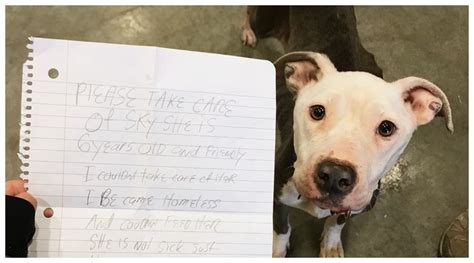 PLEASE TAKE CARE
Of SKY SHE IS
6 years OLD and Friendly
I couldnt take care of Her
I BE came Homeless
And
SHE IS not SICK Just